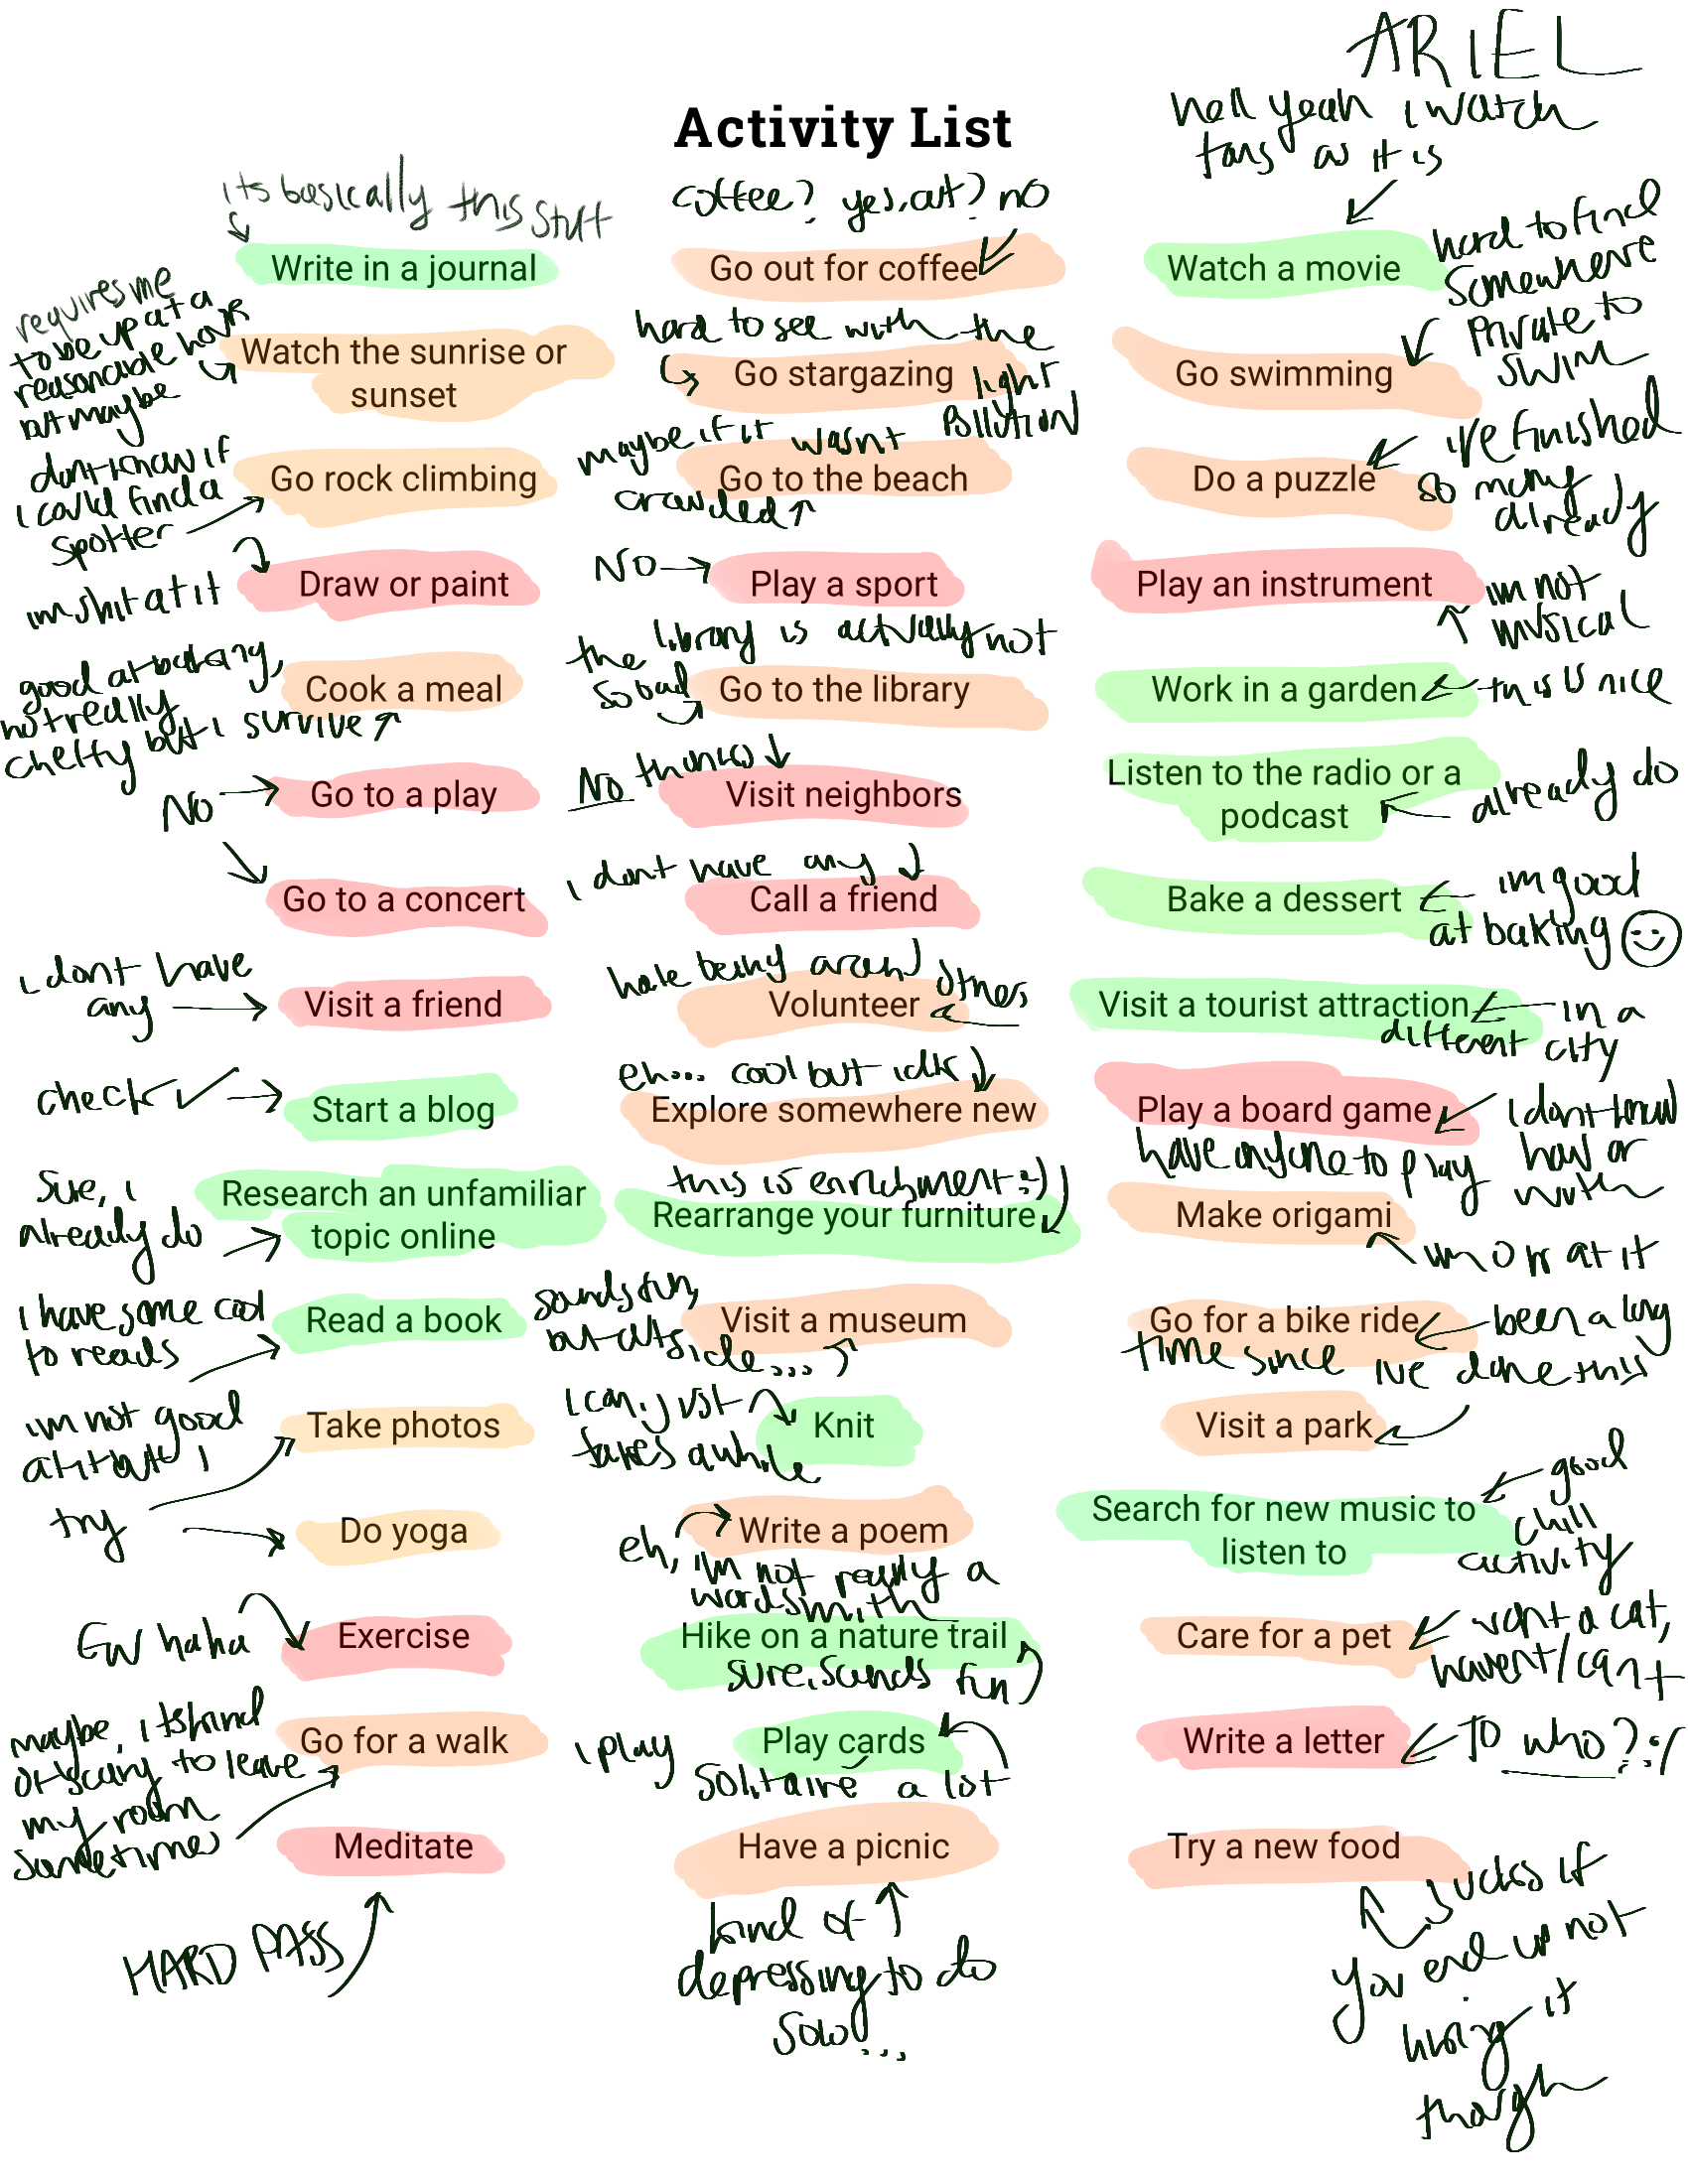 ARIEL
hell yeah i watch
tons as it is
Activity List
its basically this stuff
Write in a journal
requires me
to be up at a
reasonable hour
but maybe
Watch the sunrise or
sunset
dont know if
i could find a
spotter
Go rock climbing
im shit at it
Draw or paint
good at baking,
not really
cheffy but i survive
Cook a meal
NO
Go to a play
Go to a concert
i dont have
any
Visit a friend
check
Start a blog
Sure, i
already do
Research an unfamiliar
topic online
i have some cool
to reads
Read a book
im not good
at it but i
try
Take photos
Do yoga
EW haha
Exercise
maybe, its kind
of scary to leave
my room
sometimes
Go for a walk
Meditate
HARD PASS
coffee? yes, out? no
Go out for coffee
hard to see with the
light
pollution
Go stargazing
maybe if it wasnt
crowded
Go to the beach
NO
Play a sport
the library is actually not
so bad
Go to the library
No thanks
Visit neighbors
i dont have any
Call a friend
hate being around others
Volunteer
eh... cool but idk
Explore somewhere new
this is enrichment :)
Rearrange your furniture
sounds fun,
but outs
ide...
Visit a museum
i can, just
takes awhile
Knit
eh,
Write a poem
im not really a
wordsmith
Hike on a nature trail
sure, sounds fun
i play
Play cards
solitaire a lot
Have a picnic
kind of
depressing to do
solo...
Watch a movie
hard to find
somewhere
private to
swim
Go swimming
i've finished
so many
already
Do a puzzle
Play an instrument
im not
musical
Work in a garden
this is nice
Listen to the radio or a
podcast
already do
Bake a dessert
im good
at baking
Visit a tourist attraction
in a
different city
Play a board game
i dont know
how or
have anyone to play
with
Make origami
im ok at it
Go for a bike ride
been a long
time since ive done this
Visit a park
Search for new music to
listen to
good
chill
activity
Care for a pet
want a cat,
havent/cant
Write a letter
TO who? :/
Try a new food
sucks if
you end up not
liking it
though